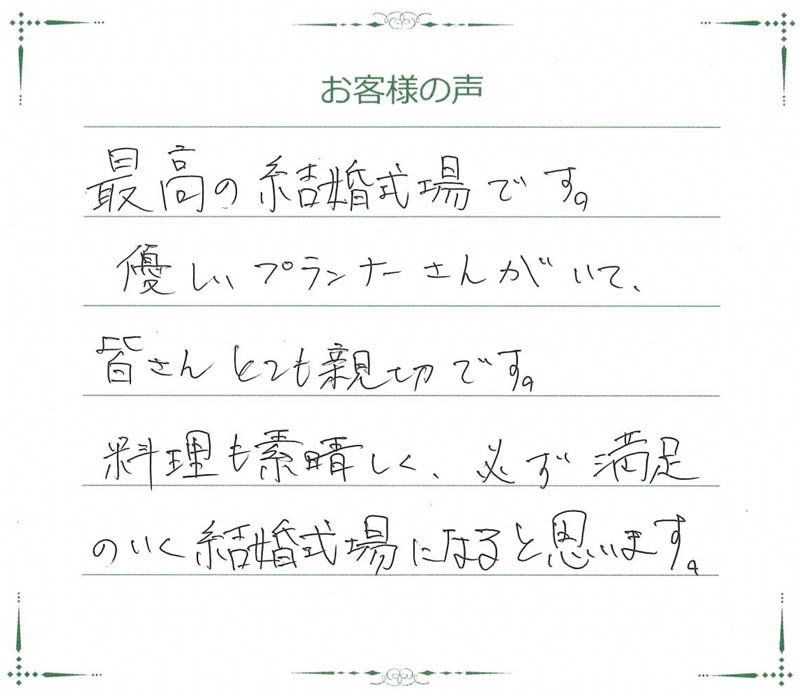 お客様の声
最高の結婚式場です。
優しいプランナーさんがいて、
皆さんとても親切です。
料理も素晴しく、必ず満足
のいく結婚式場になると思います。